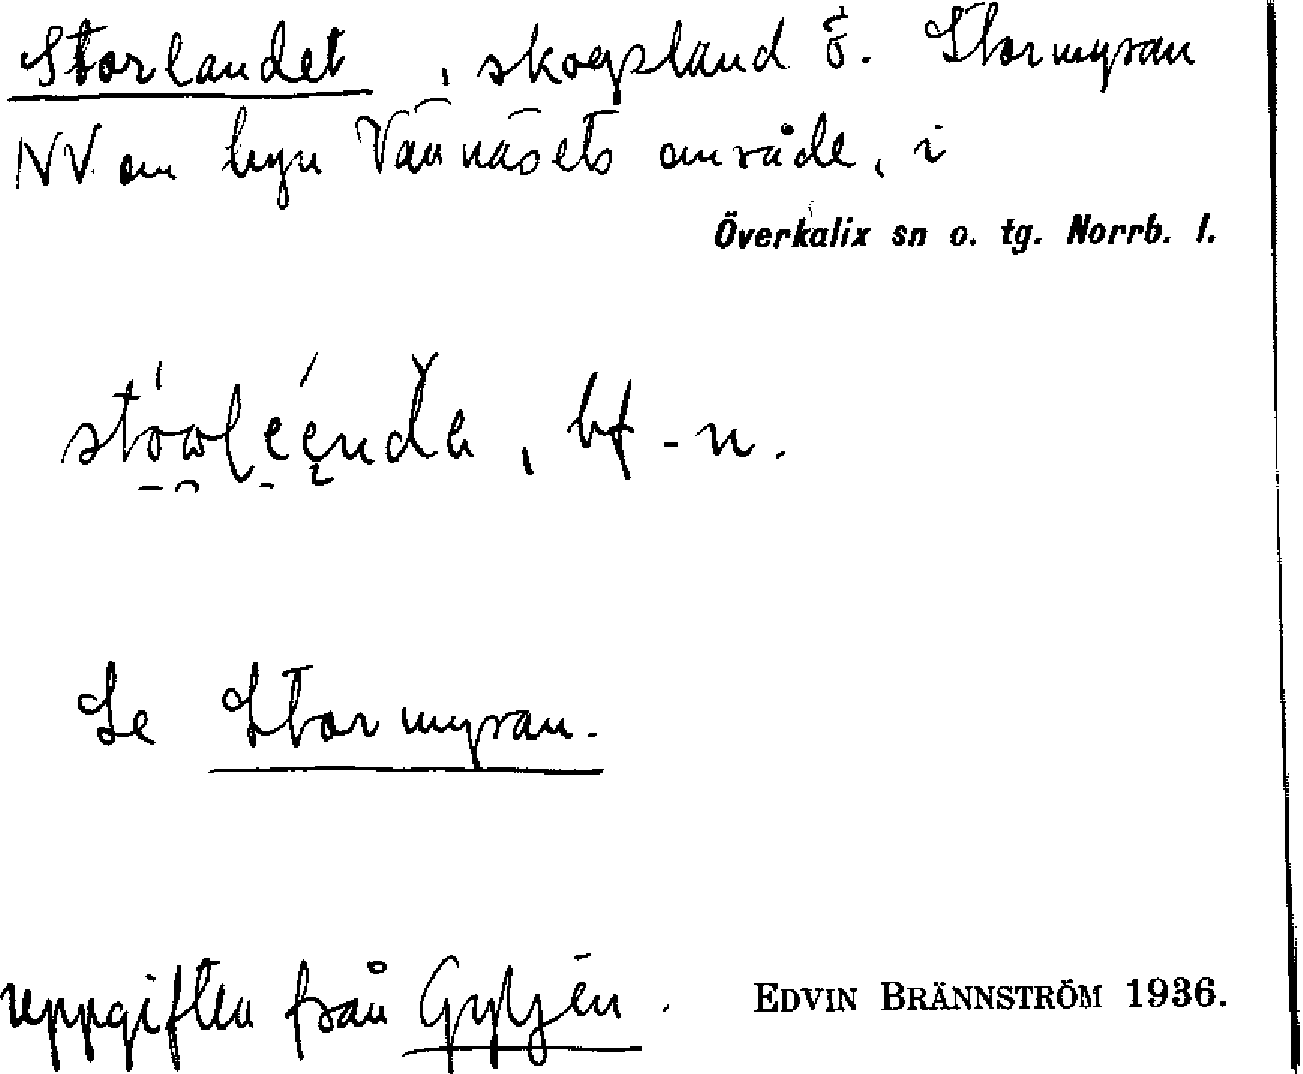 Storlandet, skogsland ö. Stormyran
NV om byn Vännäsets område, i
Överkalix sn o. tg. Norrb. l.
bf -n.
Se Stormyran.
uppgiften från Gyljen.
EDVIN BRÄNNSTRÖM 1936.